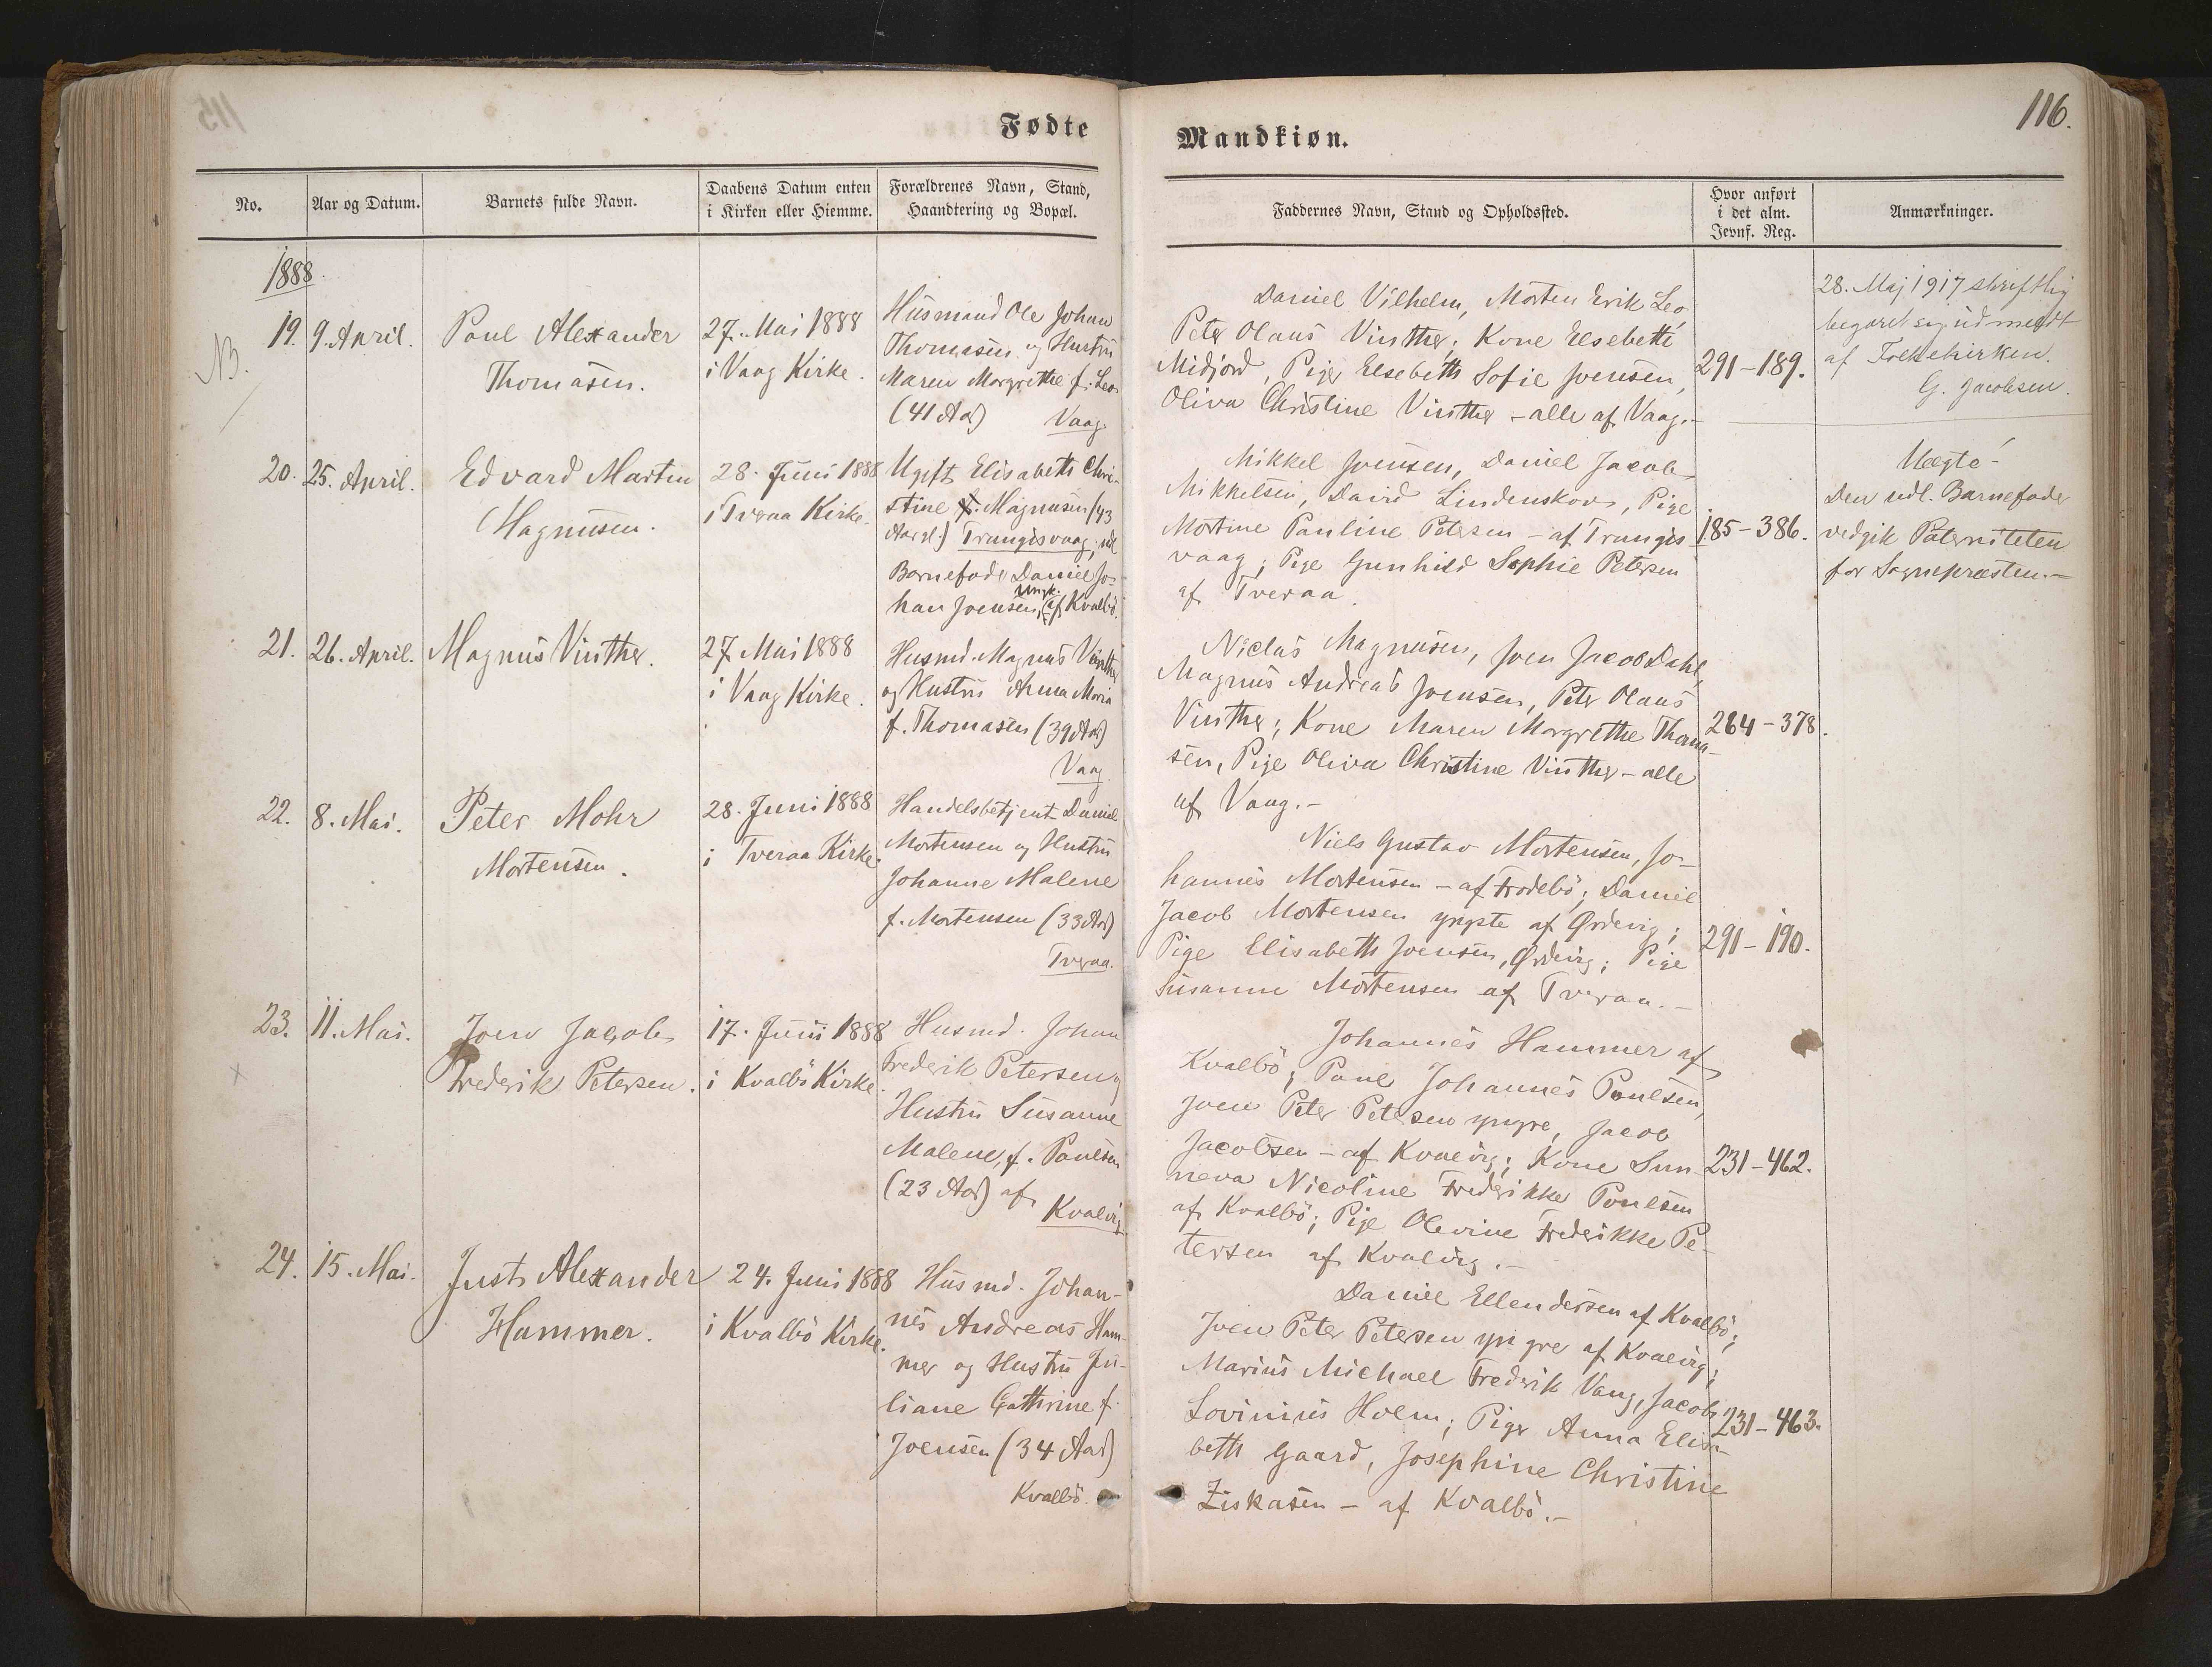 Fødte
No.
Aar og Datum.
Barnets fulde Navn.
Daabens Datum enten
i Kirken eller Hiemme.
Forældrenes Navn, Stand,
Haandtering og Bopæl.
1888.
NB.
19.
9. April.
Poul Alexander
Thomasen.
27. Mai 1888
i Vaag Kirke.
Husmand Ole Johan
Thomasen og Hustru
Maren Margrethe f. Leo
(41 Aar)
Vaag
20.
25. April.
Edvard Martin
Magnusen.
28. Juni 1888
i Tveraa Kirke.
Ugift Elisabeth Chri-
stine Magnusen (43
Aar gl.) Trangisvaag; udl.
Barnefader Daniel Jo-
han Joensen, ungk. af Kvalbö.
21.
26. April.
Magnus Vinther.
27. Mai 1888
i Vaag Kirke.
Husmd. Magnus Vinther
og Hustru Anna Maria
f. Thomasen (39 Aar)
Vaag.
22.
8. Mai.
Peter Mohr
Mortensen.
28. Juni 1888
i Tveraa Kirke.
Handelsbetjent Daniel
Mortensen og Hustru
Johanne Malene
f. Mortensen (33 Aar)
Tveraa.
23.
11. Mai.
Joen Jacob
Frederik Petersen.
17. Juni 1888
i Kvalbö Kirke.
Husmd. Johan
Frederik Petersen og
Hustru Susanne
Malene, f. Poulsen
(23 Aar) af
Kvalvig.
24.
15. Mai.
Just Alexander
Hammer.
24. Juni 1888
i Kvalbö Kirke.
Husmd. Johan-
nes Andreas Ham-
mer og Hustru Ju-
liane Cathrine f.
Joensen (34 Aar)
Kvalbö.
116.
Mandkiøn.
Faddernes Navn, Stand og Opholdssted.
Hvor anført
i det alm.
Jevnf. Reg.
Anmærkninger.
Daniel Vilhelm, Morten Erik Leo,
Peter Olaus Vinther; Kone Elsebeth
Midjord, Piger Elsebeth Sofie Joensen,
Oliva Christine Vinther – alle af Vaag.–
291–189.
28. Maj 1917 skriftlig
begæret sig udmeldt
af Folkekirken.
G. Jacobsen.
Mikkel Joensen, Daniel Jacob
Mikkelsen, David Lindenskov, Pige
Mortine Pauline Petersen – af Trangis-
vaag; Pige Gunhild Sophie Petersen
af Tveraa.
185–386.
Uægte–
Den udl. Barnefader
vedgik Paterniteten
for Sognepræsten.–
Niclas Magnusen, Joen Jacob Dahl,
Magnus Andreas Joensen, Peter Olaus
Vinther; Kone Maren Margrethe Thoma-
sen, Pige Oliva Christine Vinther – alle
af Vaag.–
264–378.
Niels Gustav Mortensen, Jo-
hannes Mortensen – af Frodebö; Daniel
Jacob Mortensen yngste af Ørdevig;
Pige Elisabeth Joensen, Ørdevig; Pige
Susanne Mortensen af Tveraa.–
291–190.
Johannes Hammer af
Kvalbö; Poul Johannes Poulsen,
Joen Peter Petersen yngre, Jacob
Jacobsen – af Kvalvig; Kone Sun-
neva Nicoline Frederikke Poulsen
af Kvalbö; Pige Olevine Frederikke Pe-
tersen af Kvalvig.–
231–462.
Daniel Ellendersen af Kvalbö;
Joen Peter Petersen yngre af Kvalvig;
Marius Michael Frederik Vang, Jacob
Lovinius Holm; Piger Anna Elisa-
beth Gaard, Josephine Christine
Ziskasen – af Kvalbö.–
231–463.